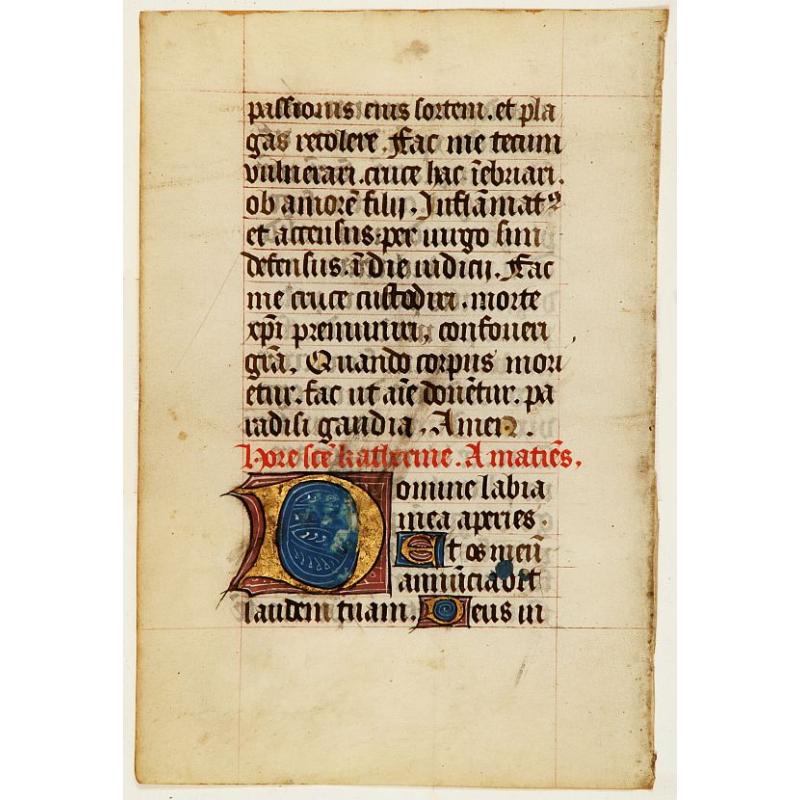 passionis eius sortem. et pla
gas recolere. Fac me tecum
vulnerari. cruce hac īebriari.
ob amorē filij. Inflāmatꝰ
et accensus. per uirgo sim
defensus. ī die iudicij. Fac
me cruce custodiri. morte
xp̄i premuniri, confoueri
grā. Quando corpus mori
etur. fac ut aīe donētur. pa
radisi gaudia. Amen.
Hore scē katherine. A matiēs.
Domine labia
mea aperies.
Et os meū
annūciabit
laudem tuam. Deus in